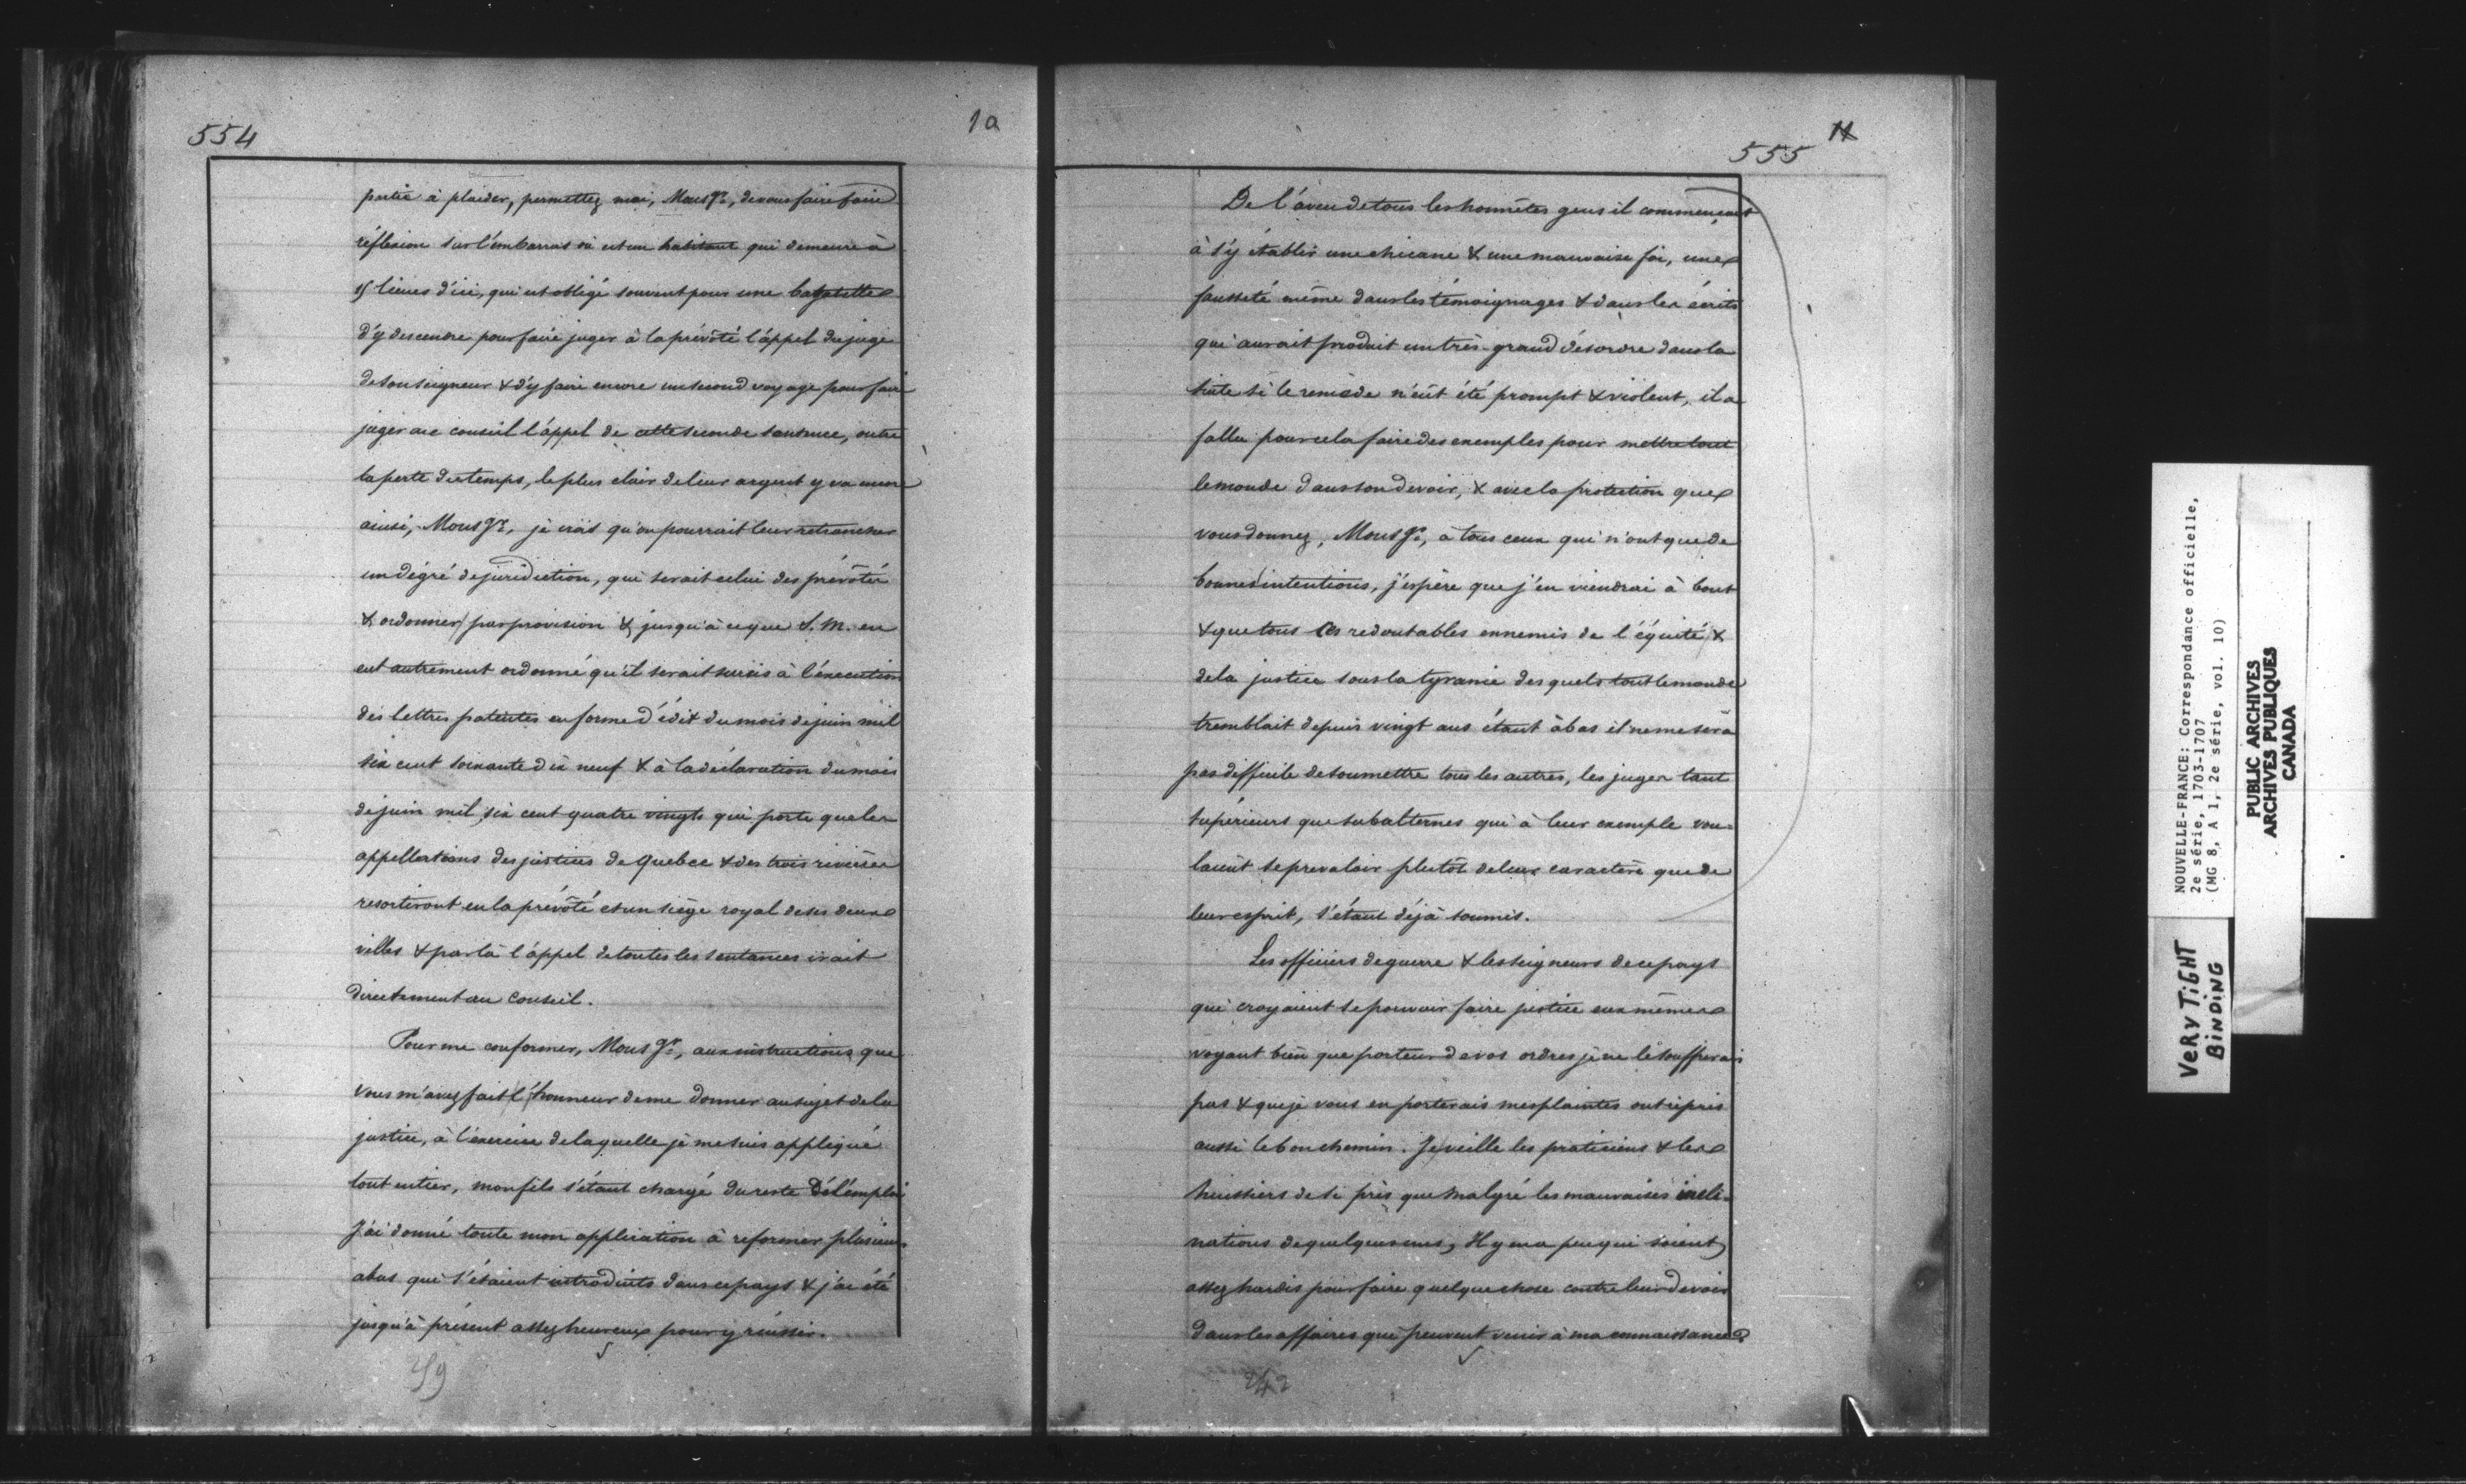 554
10
partie à plaider, permettez moi, Monsgr., de vous faire faire
réflexion sur l'embarras où est un habitant qui demeure à
15 lieues d'ici, qui est obligé souvent pour une bagatelle
d'y descendre pour faire juger à la prévôté l'appel du juge
de son seigneur & d'y faire encore un second voyage pour faire
juger au conseil l'appel de cette seconde sentence, outre
la perte du temps, le plus clair de leur argent y va encore
ainsi, Monsgr., je crois qu'on pourrait leur retrancher
un dégré de juridiction, qui serait celui des prévôtés
& ordonner par provision & jusqu'à ce que S. M. en
eut autrement ordonné qu'il serait sursis à l'éxecution
des lettres patentes en forme d'édit du mois de juin mil
six cent soixante dix neuf & à la déclaration du mois
de juin mil six cent quatre vingts qui porte que les
appellations des justices de Quebec & des trois rivières
resortiront en la prévôté et un siège royal de ses deux
villes & par là l'appel de toutes les sentances irait
directement au Conseil.
Pour me conformer, Monsgr., aux instructions que
vous m'avez fait l'honneur de me donner au sujet de la
justice, à l'exercice de laquelle je me suis appliqué
tout entier, mon fils s'étant chargé du reste de l'emploi
J'ai donné toute mon application à reformer plusieurs
abus qui s'étaient introduits dans ce pays & j'ai été
jusqu'à présent assez heureux pour y réussir.
555
11
De l'aveu de tous les honnêtes gens il commençait
à s'y établir une chicane & une mauvaise foi, une
fausseté même dans les témoignages & dans les écrits
qui aurait produit un très grand désordre dans la
suite si le remède n'eût été prompt & violent, il a
fallu pour cela faire des exemples pour mettre tout
le monde dans son devoir, & avec la protection que
vous donnez, Monsgr., à tous ceux qui n'ont que de
bonnes intentions, j'espère que j'en viendrai à bout
& que tous ces redoutables ennemis de l'équité &
de la justice sous la tyranie des quels tout le monde
tremblait depuis vingt ans étant à bas il ne me sera
pas difficile de soumettre tous les autres, les juges tant
supérieurs que subalternes qui à leur exemple vou-
laient se prevaloir plutôt de leur caractère que de
leur esprit, s'étant déjà soumis.
Les officiers de guerre & les seigneurs de ce pays
qui croyaient se pouvoir faire justice eux mêmes
voyant bien que porteur de vos ordres je ne le souffrirais
pas & que je vous en porterais mes plaintes ont repris
aussi le bon chemin. Je veille les praticiens & les
huissiers de si près que malgré les mauvaises incli-
nations de quelques uns, Il y en a peu qui soient
assez hardis pour faire quelque chose contre leur devoir
dans les affaires qui peuvent venir à ma connaissance.
242
NOUVELLE-FRANCE: Correspondance officielle,
2e série, 1703-1707
(MG 8, A 1, 2e série, vol. 10)
PUBLIC ARCHIVES
ARCHIVES PUBLIQUES
CANADA
VERY TIGHT
BINDING